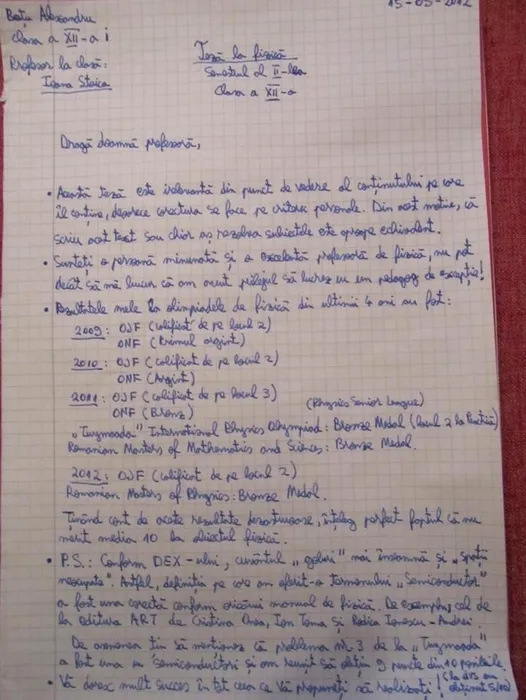 15-05-2012
Bețiu Alexandru
Clasa a XII-a i
Profesor la clasă:
Ioana Stoica
Teză la fizică
Semestrul al II-lea
Clasa a XII-a
Dragă doamnă profesoară,
• Această teză este irelevantă din punct de vedere al conținutului pe care
îl conține, deoarece corectura se face pe criterii personale. Din acest motiv, că
scriu acest text sau chiar aș rezolva subiectele este aproape echivalent.
• Sunteți o persoană minunată și o excelentă profesoară de fizică, nu pot
decât să mă bucur că am avut prilejul să lucrez cu un pedagog de excepție!
• Rezultatele mele la olimpiadele de fizică din ultimii 4 ani au fost:
2009: OJF (calificat de pe locul 2)
ONF (Premiul argint)
2010: OJF (calificat de pe locul 2)
ONF (Argint)
2011: OJF (calificat de pe locul 3)
ONF (Bronz) (Physics Senior League)
„Tuymaada" International Physics Olympiad: Bronze Medal (locul 2 la Practică)
Romanian Masters of Mathematics and Sciences: Bronze Medal.
2012: OJF (calificat de pe locul 2)
Romanian Masters of Physics: Bronze Medal.
Ținând cont de aceste rezultate dezastruoase, înțeleg perfect faptul că nu
merit media 10 la obiectul fizică.
• P.S.: Conform DEX-ului, cuvântul „goluri" mai înseamnă și „spații
neocupate". Astfel, definiția pe care am oferit-o termenului „Semiconductor"
a fost una corectă conform oricărui manual de fizică. De exemplu, cel de
la editura ART de Cristina Onea, Ion Toma, și Rodica Ionescu-Andrei.
De asemenea țin să menționez că problema nr. 3 de la „Tuymaada"
a fost una cu semiconductori și am reușit să obțin 9 puncte din 10 posibile.
• Vă doresc mult succes în tot ceea ce vă propuneți să realizați!
obținut 5/10)